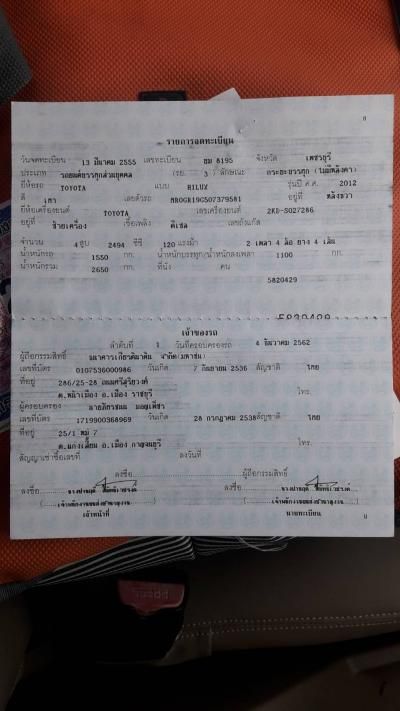 รายการจดทะเบียน
วันจดทะเบียน 13 มีนาคม 2555 เลขทะเบียน ยม 8195 จังหวัด เพชรบุรี
ประเภท รถยนต์บรรทุกส่วนบุคคล (รย. 3 ) ลักษณะ กระบะบรรทุก (ไม่มีหลังคา)
ยี่ห้อรถ TOYOTA แบบ HILUX รุ่นปี ค.ศ. 2012
สี เทา เลขตัวรถ MR0GR19G507379581 อยู่ที่ หลังขวา
ยี่ห้อเครื่องยนต์ TOYOTA เลขเครื่องยนต์ 2KD-S027286
อยู่ที่ ซ้ายเครื่อง เชื้อเพลิง ดีเซล เลขถังแก๊ส
จำนวน 4 สูบ 2494 ซีซี 120 แรงม้า 2 เพลา 4 ล้อ ยาง 4 เส้น
น้ำหนักรถ 1550 กก. น้ำหนักบรรทุก/น้ำหนักลงเพลา 1100 กก.
น้ำหนักรวม 2650 กก. ที่นั่ง คน
5820429
เจ้าของรถ
ลำดับที่ 1 วันที่ครอบครองรถ 4 ธันวาคม 2562
ผู้ถือกรรมสิทธิ์ ธนาคารเกียรตินาคิน จำกัด (มหาชน)
เลขที่บัตร 0107536000986 วันเกิด 7 กันยายน 2536 สัญชาติ ไทย
ที่อยู่ 286/25-28 ถนนศรีสุริยวงศ์
ต.หน้าเมือง อ.เมือง ราชบุรี โทร.
ผู้ครอบครอง
เลขที่บัตร 1719900368969 วันเกิด 28 กรกฎาคม 2538 สัญชาติ ไทย
ที่อยู่ 25/1 หมู่ 7
ต.แก่งเสี้ยน อ.เมือง กาญจนบุรี โทร.
สัญญาเช่าซื้อเลขที่ ลงวันที่
ลงชื่อ ผู้ถือกรรมสิทธิ์
ลงชื่อ ลงชื่อ
เจ้าหน้าที่ นายทะเบียน